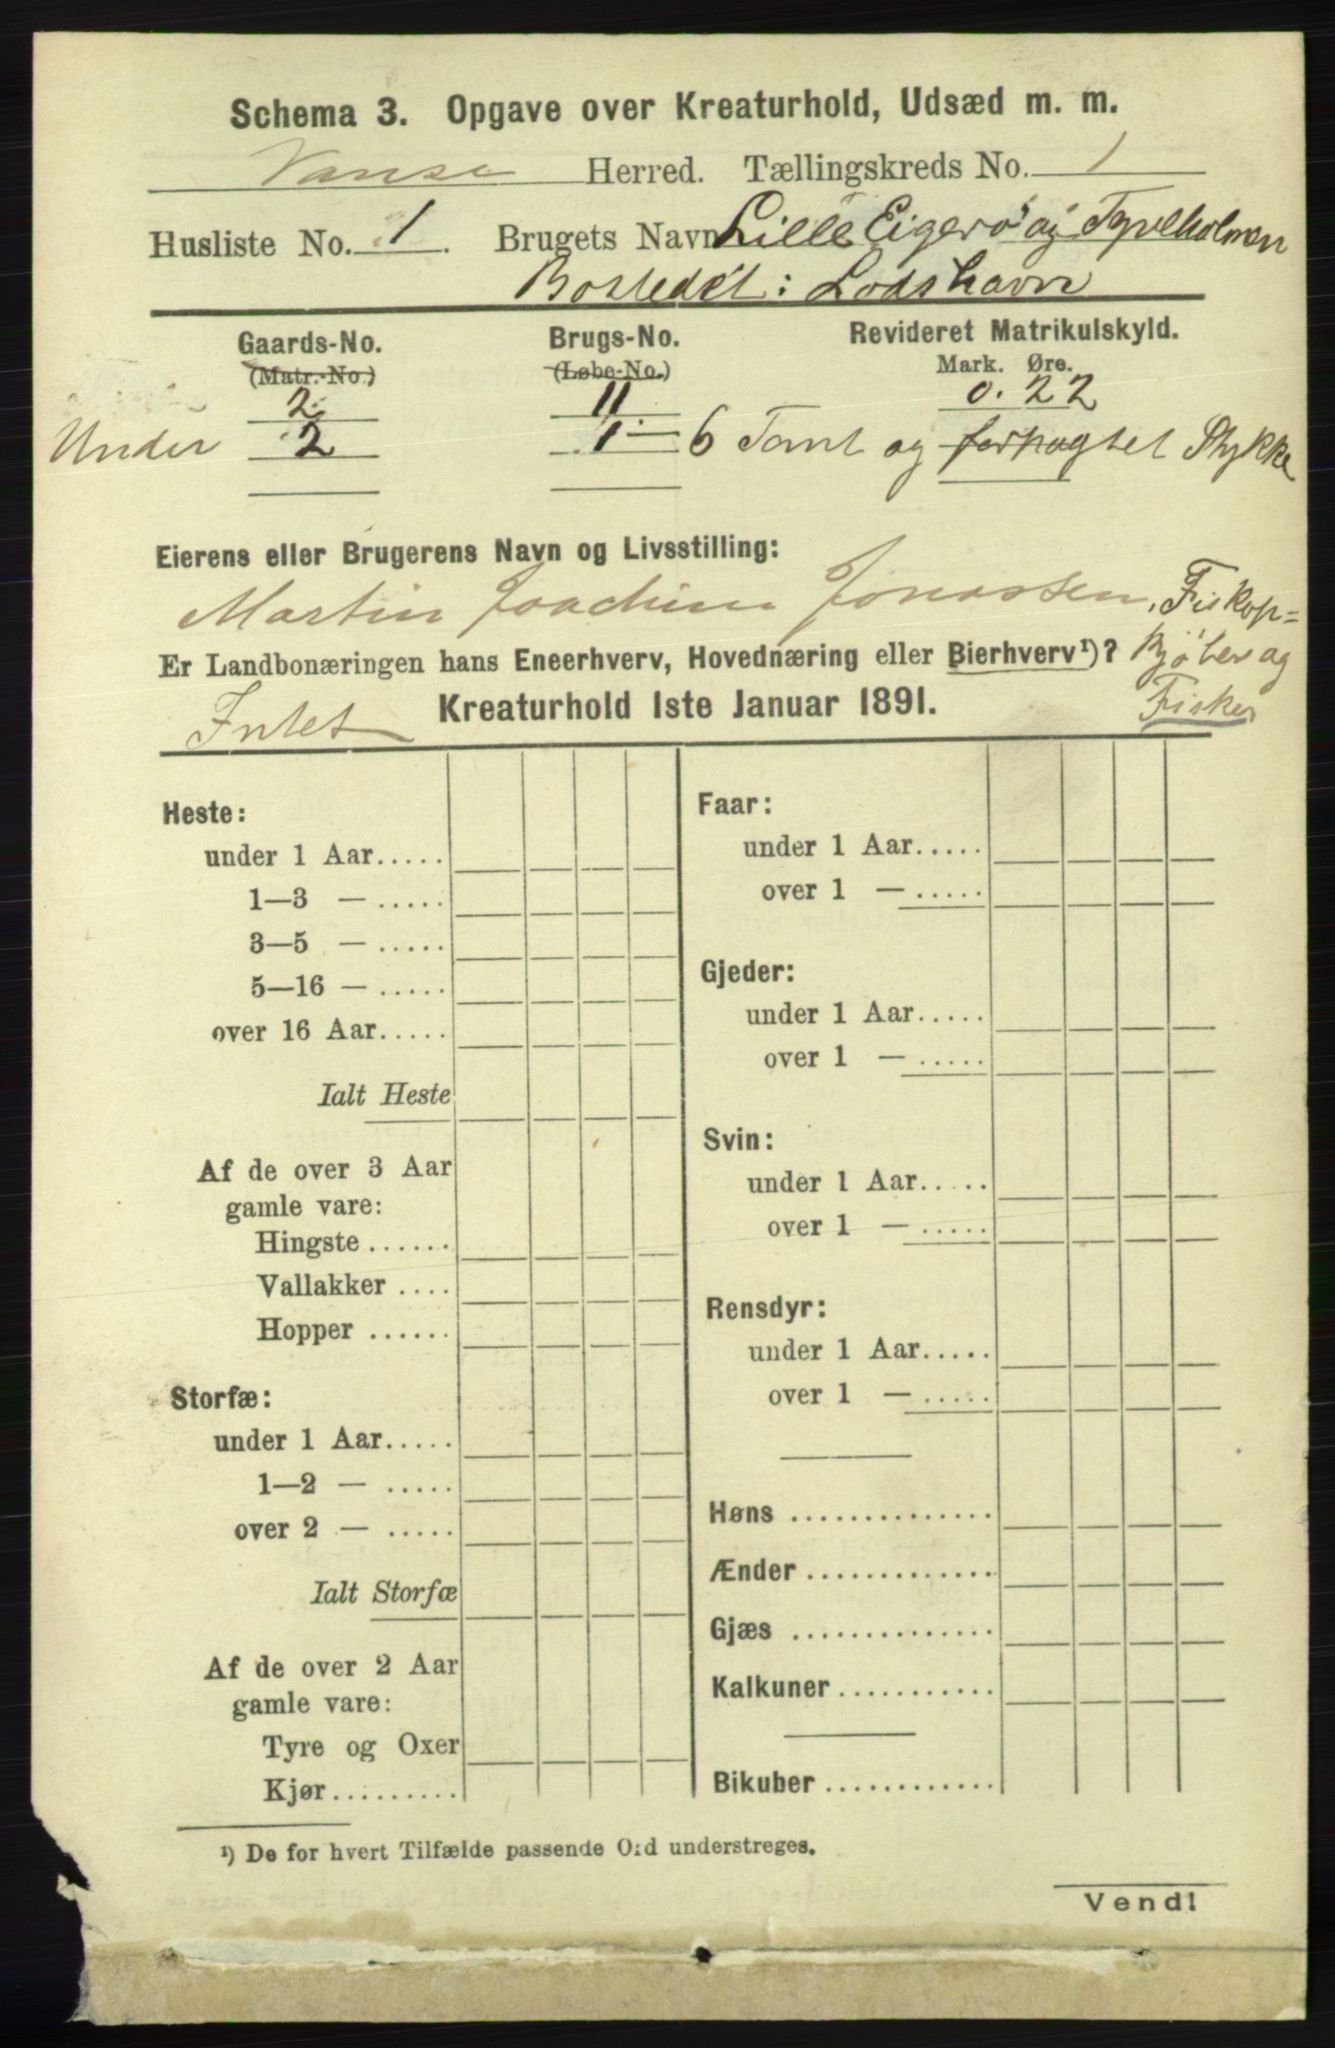 Schema 3. Opgave over Kreaturhold, Udsæd m. m.
Vanse Herred. Tællingskreds No. 1
Husliste No. 1. Brugets Navn Lille Eigerø og
Bostedet: Lodshavn
Gaards-No. Brugs-No. Revideret Matrikulskyld.
(Matr.-No.) (Løbe-No.) Mark. Øre.
2 11 0. 22
Under 2 1 — 6 Tomt og forpagtet Stykke
Eierens eller Brugerens Navn og Livsstilling:
Martin Joachim Jonassen, Fiskop=
Er Landbonæringen hans Eneerhverv, Hovednæring eller Bierhverv¹)? kjøber og
Intet Kreaturhold 1ste Januar 1891. Fisker
Heste:
under 1 Aar.....
1—3 — .....
3—5 — .....
5—16 — .....
over 16 Aar.....
Ialt Heste
Af de over 3 Aar
gamle vare:
Hingste ......
Vallakker ....
Hopper ......
Storfæ:
under 1 Aar.....
1—2 — .....
over 2 — .....
Ialt Storfæ
Af de over 2 Aar
gamle vare:
Tyre og Oxer
Kjør.........
Faar:
under 1 Aar.....
over 1 — .....
Gjeder:
under 1 Aar.....
over 1 — .....
Svin:
under 1 Aar.....
over 1 — .....
Rensdyr:
under 1 Aar.....
over 1 — .....
Høns ..............
Ænder .............
Gjæs ..............
Kalkuner ...........
Bikuber ............
¹) De for hvert Tilfælde passende Ord understreges.
Vend!